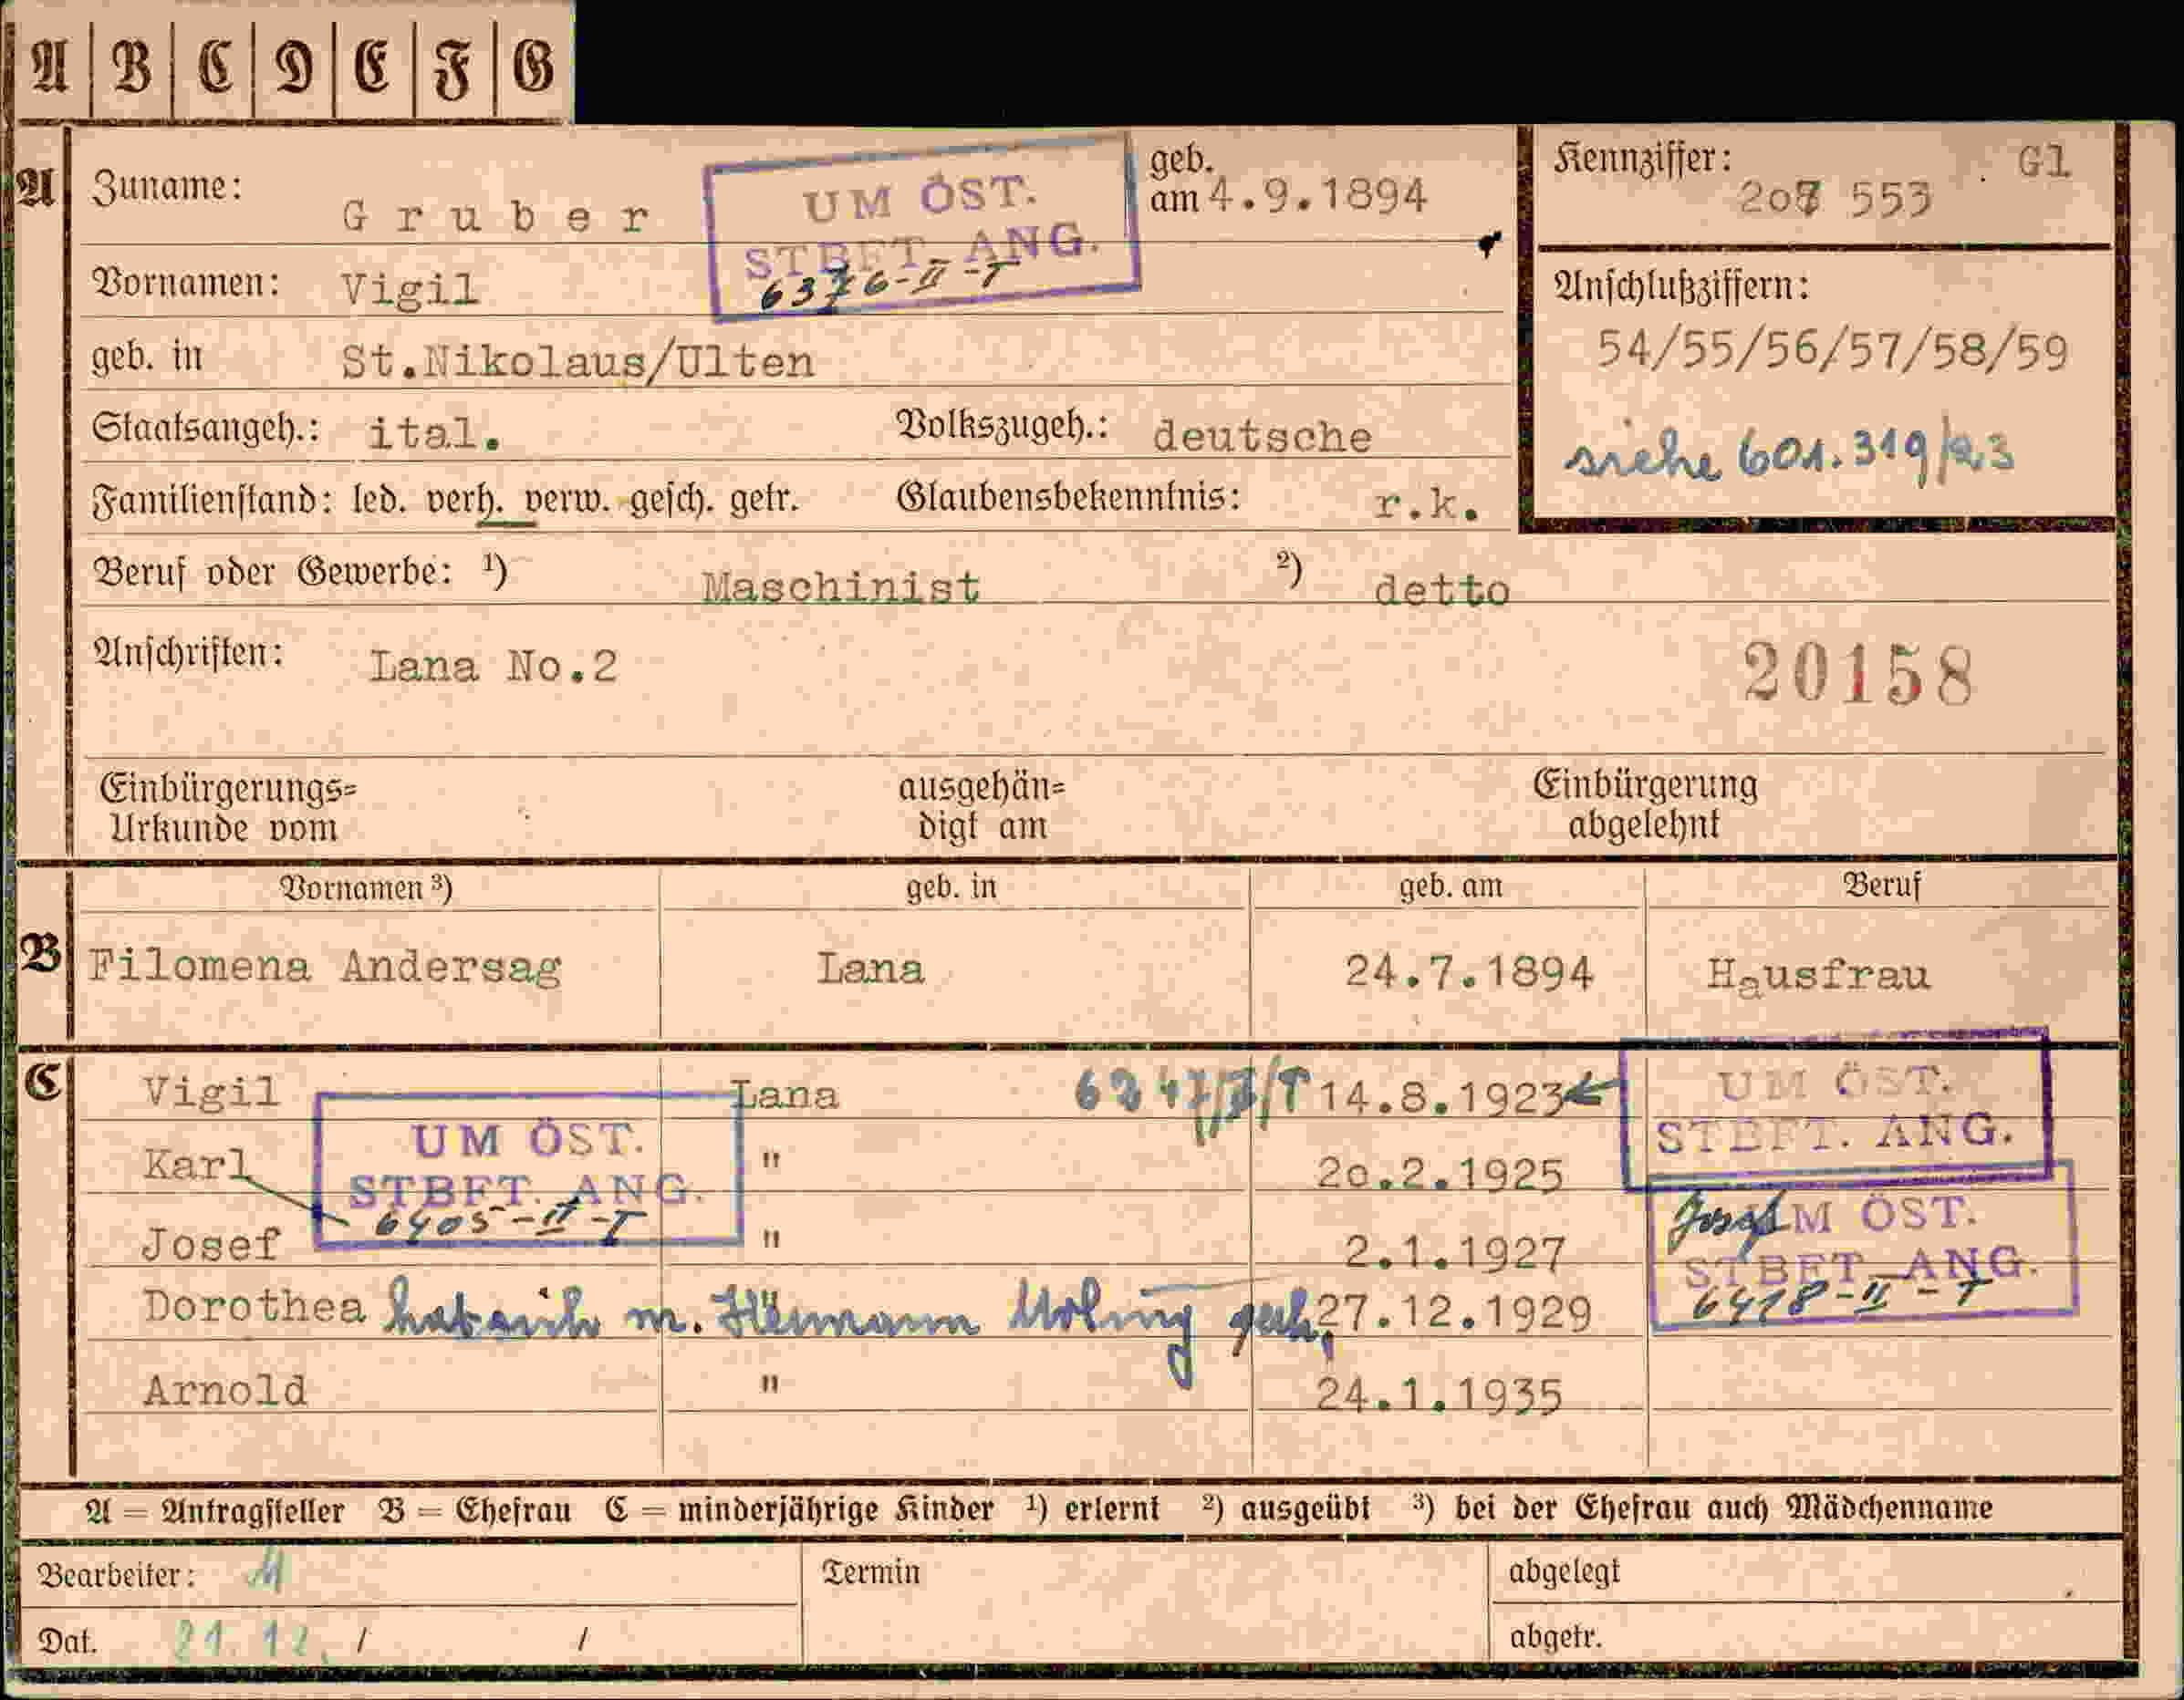 A B C D E F G
A Zuname: Gruber
UM ÖST.
STBFT. ANG.
6376-II-T
geb. am 4.9.1894
Kennziffer: 553 Gl
Vornamen: Vigil
Anschlußziffern:
54/55/56/57/58/59
siehe 601.319/23
geb. in St.Nikolaus/Ulten
Staatsangeh.: ital. Volkszugeh.: deutsche
Familienstand: led. verh. verw. gesch. getr. Glaubensbekenntnis: r.k.
Beruf oder Gewerbe: ¹) Maschinist ²) detto
Anschriften: Lana No.2
20158
Einbürgerungs=Urkunde vom
ausgehän=digt am
Einbürgerung abgelehnt
Vornamen ³) geb. in geb. am Beruf
B Filomena Andersag Lana 24.7.1894 Hausfrau
C Vigil Lana 14.8.1923
UM ÖST.
STBFT. ANG.
Karl " 20.2.1925
UM ÖST.
STBFT. ANG.
6405-II-T
Josef " 2.1.1927
Josef UM ÖST.
STBFT. ANG.
6418-II-T
Dorothea hat sich m. Hermann geh. " 27.12.1929
Arnold " 24.1.1935
A = Antragsteller B = Ehefrau C = minderjährige Kinder ¹) erlernt ²) ausgeübt ³) bei der Ehefrau auch Mädchenname
Bearbeiter: Termin abgelegt
Dat. 21.12. / / abgetr.